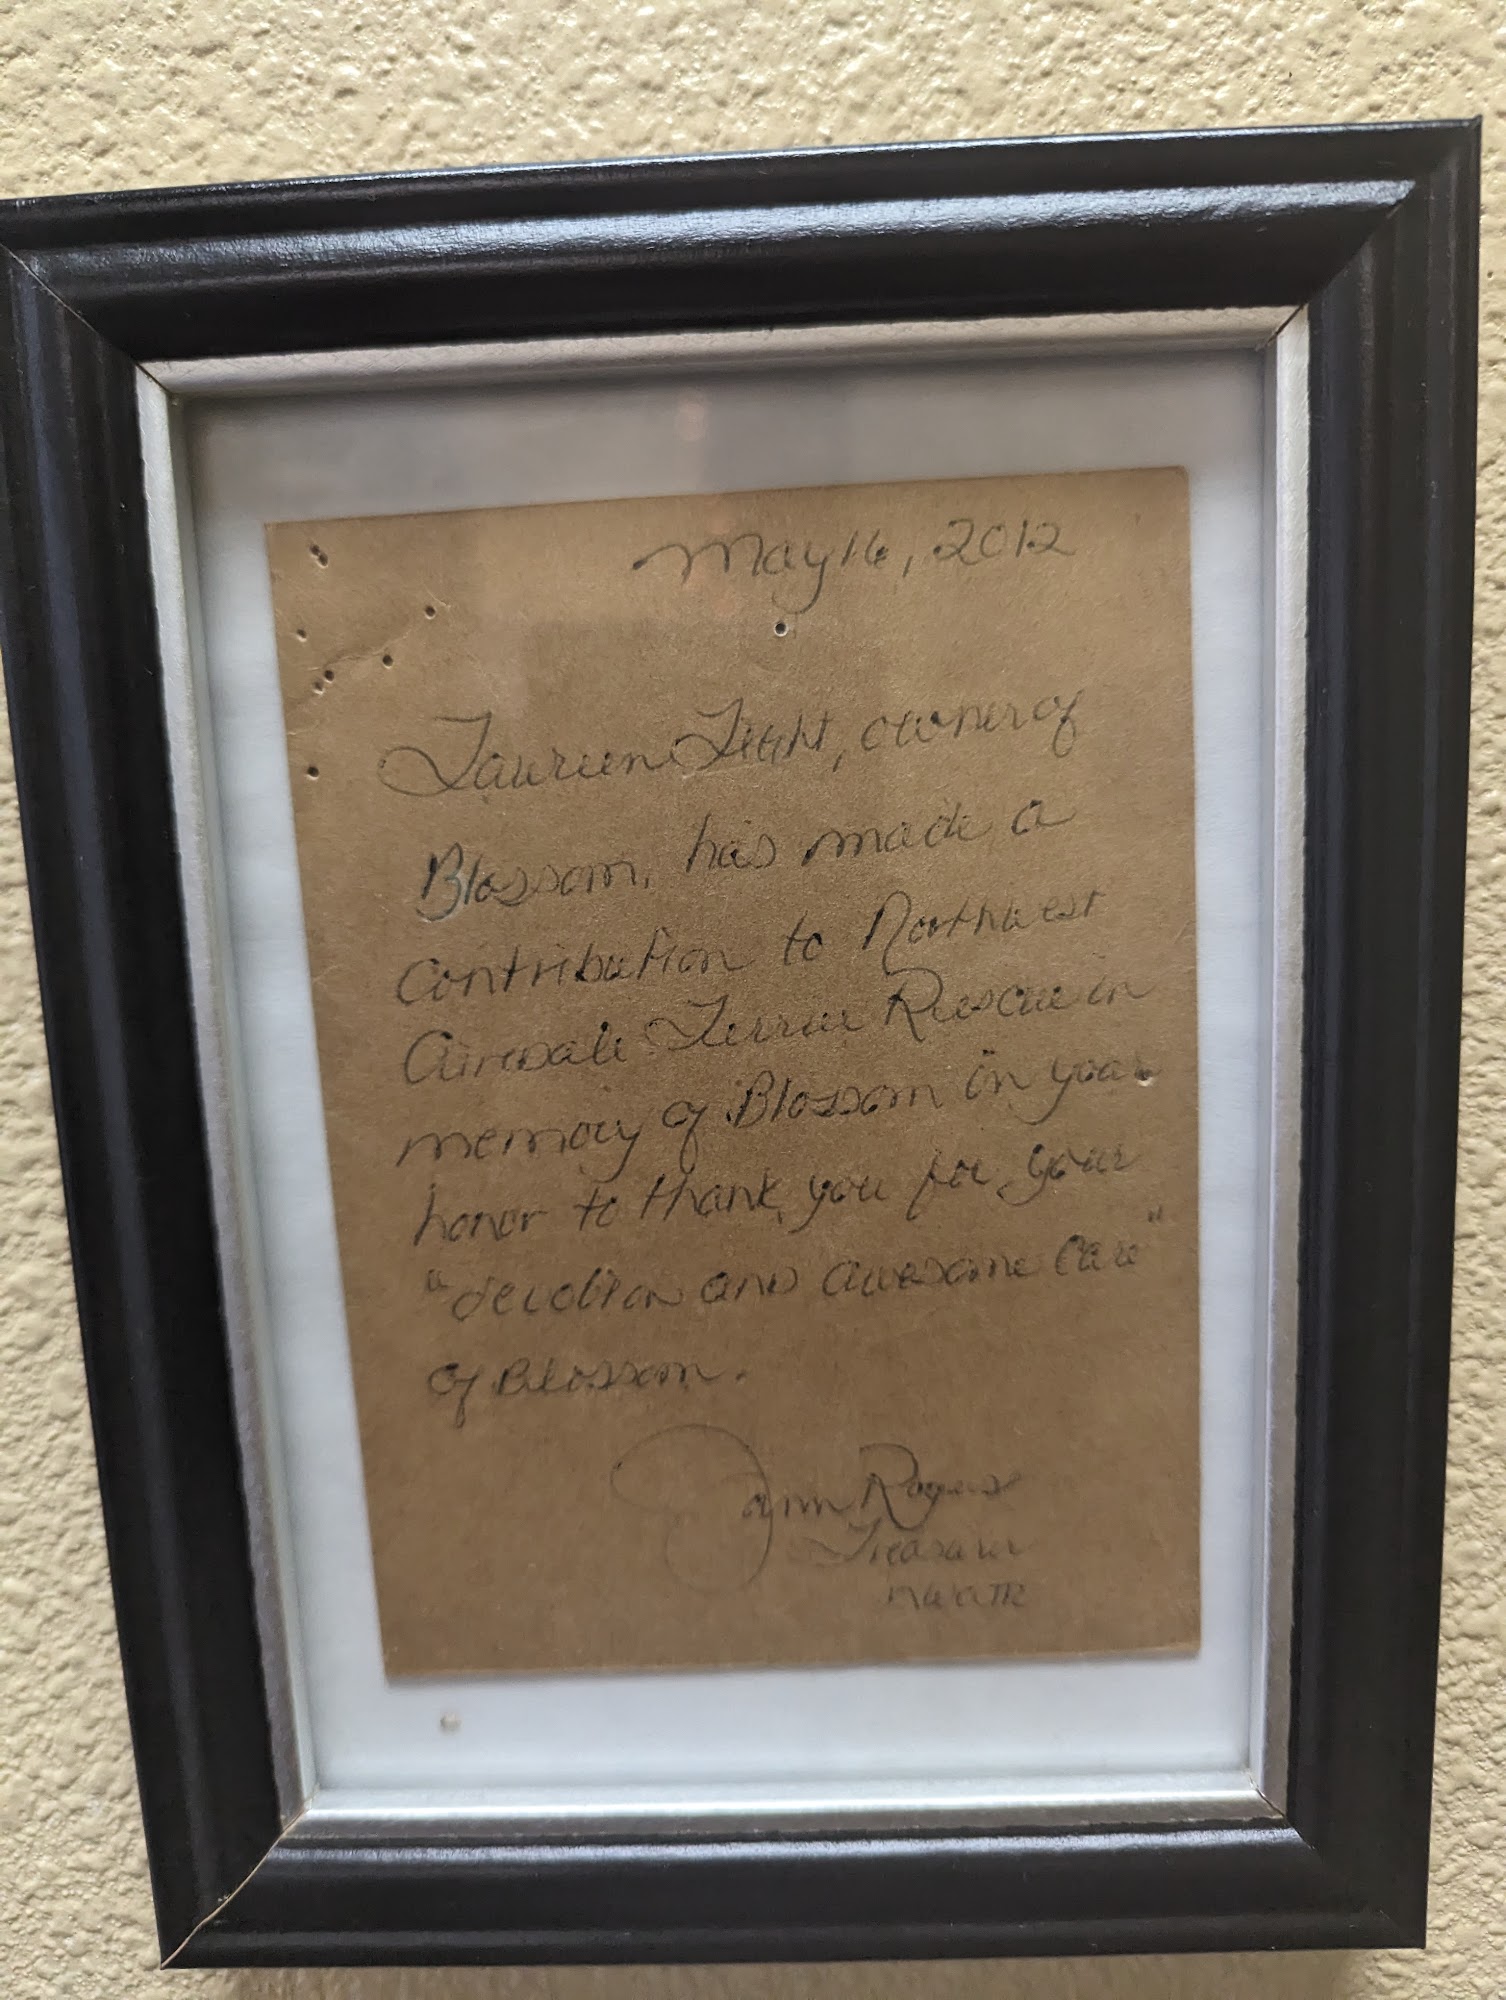 May 16, 2012
owner of
Blossom, has made a
contribution to Northwest
Airedale Terrier Rescue in
memory of Blossom in your
honor to thank you for your
"devotion and awesome care"
of Blossom.
Rogers
Treasurer
NWATR